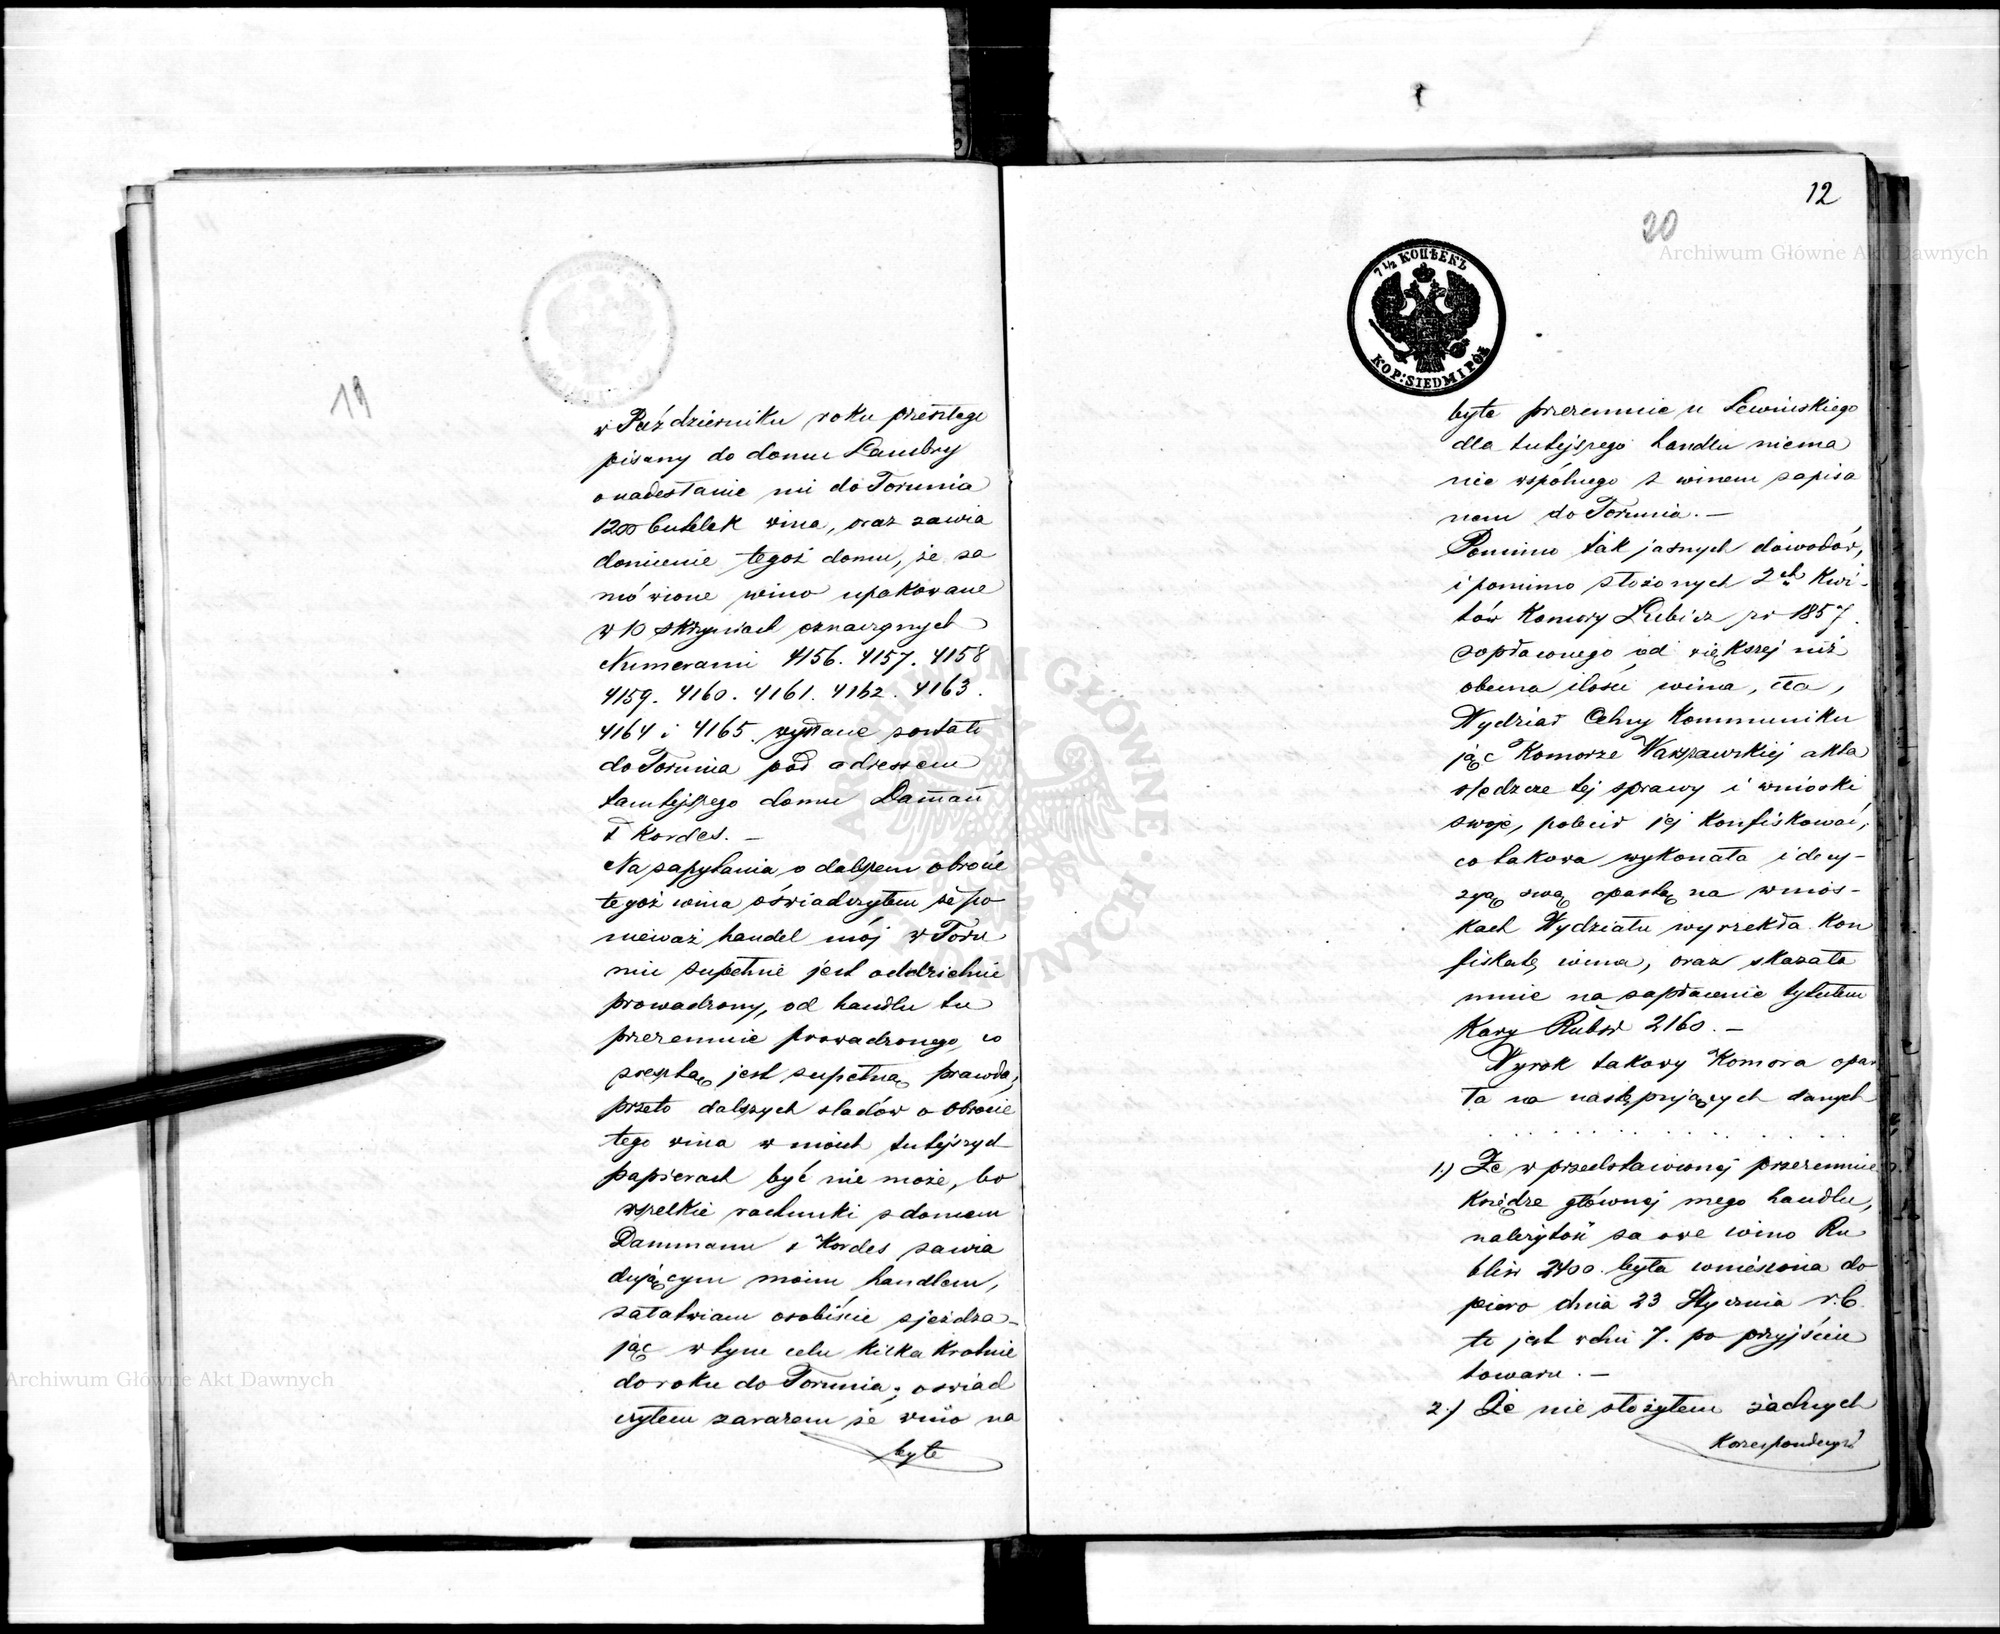 19
w Październiku roku przeszłego
pisany do domu Lambry
o nadesłanie mi do Torunia
1200 butelek wina, oraz zawia
domienie tegoż domu, że za
mówione wino upakowane
w 10 skrzyniach oznaczonych
Numerami 4156. 4157. 4158
4159. 4160. 4161. 4162. 4163.
4164 i 4165. wysłane zostało
do Torunia pod adressem
tamtejszego domu Damañ
& Kordes. —
Na zapytania o dalszem obrocie
tegoż wina oświadczyłem że po
nieważ handel mój w Toru
niu zupełnie jest oddzielnie
prowadzony, od handlu tu
przezemnie prowadzonego, co
zresztą jest zupełną prawdą,
przeto dalszych śladów o obrocie
tego wina w moich tutejszych
papierach być nie może, bo
wszelkie rachunki z domem
Dammann & Kordes zawia
dującym moim handlem,
załatwiam osobiście zjeżdża-
jąc w tym celu kilka krotnie
do roku do Torunia; oświad
czyłem zarazem że wino na
byte
12
20
7 1/2 КОПѢЕКЪ
KOP: SIEDM I PÓŁ
byte przezemnie u Lewińskiego
dla tutejszego handlu niema
nic wspólnego z winem zapisa
nem do Torunia. —
Pomimo tak jasnych dowodów,
i pomimo złożonych 2ch Kwi-
tów Komory Lubicz z r 1857.
zopłaconego od większej niż
obecna ilości wina, cła,
Wydział Celny Kommuniku
jąc Komorze Warszawskiej akta
śledcze tej sprawy i wnioski
swoje, polecił jej konfiskować,
co takowa wykonała i decy-
zyą swą opartą na wnios-
kach Wydziału wyrzekła Kon
fiskatę wina, oraz skazała
mnie na zapłacenie tytułem
Kary Rubsr 2160. —
Wyrok takowy Komora opar
ła na następujących danych
1.) Że w przedstawionej przezemnie
Księdze głównej mego handlu,
należytość za owe wino Ru
blisr 2400. była wniesiona do
piero dnia 23 Stycznia r. b.
to jest w dni 7. po przyjściu
towaru. —
2.) Że nie złożyłem żadnych
Korespondencyi
ARCHIWUM GŁÓWNE AKT DAWNYCH
Archiwum Główne Akt Dawnych
Archiwum Główne Akt Dawnych